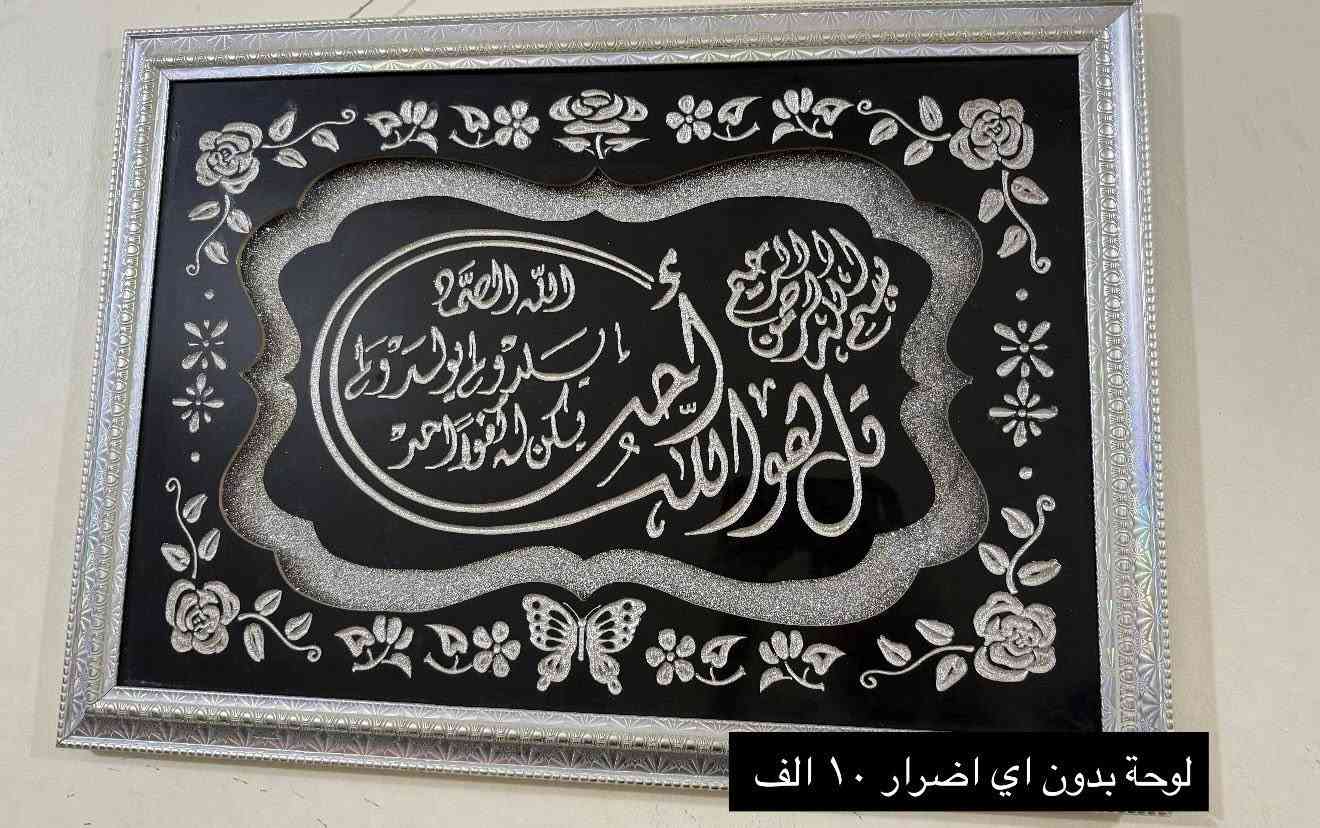 بسم الله الرحمن الرحيم
قل هو الله أحد
الله الصمد
لم يلد ولم يولد ولم
يكن له كفوا احد
لوحة بدون اي اضرار ١٠ الف